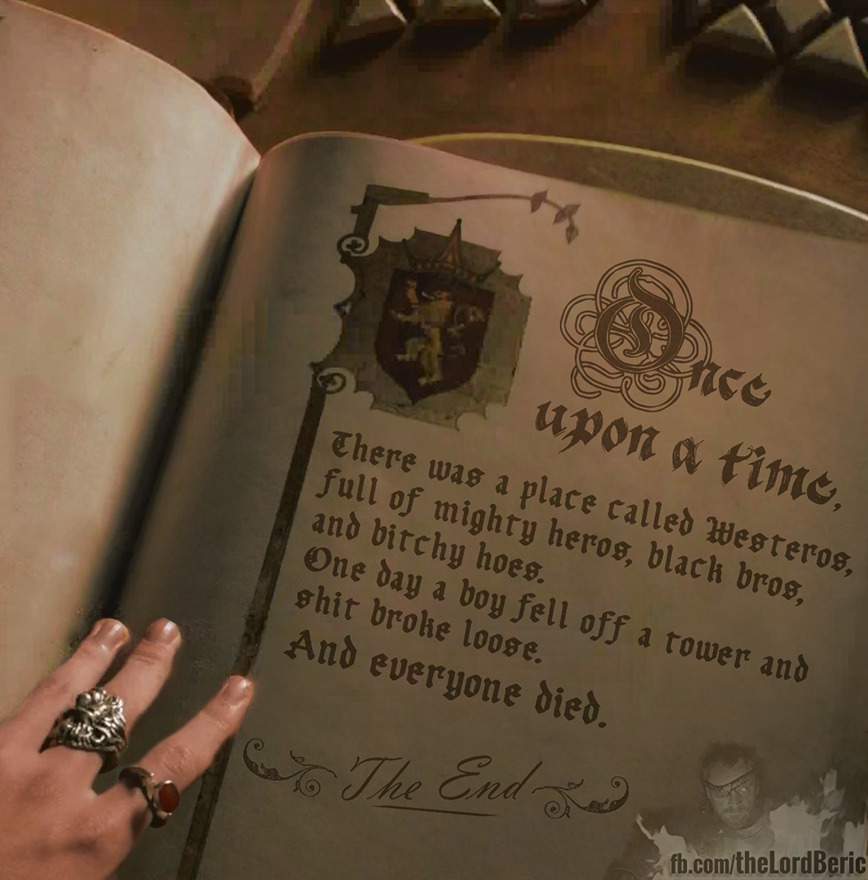 Once
upon a time,
There was a place called Westeros,
full of mighty heros, black bros,
and bitchy hoes.
One day a boy fell off a tower and
shit broke loose.
And everyone died.
The End
fb.com/theLordBeric